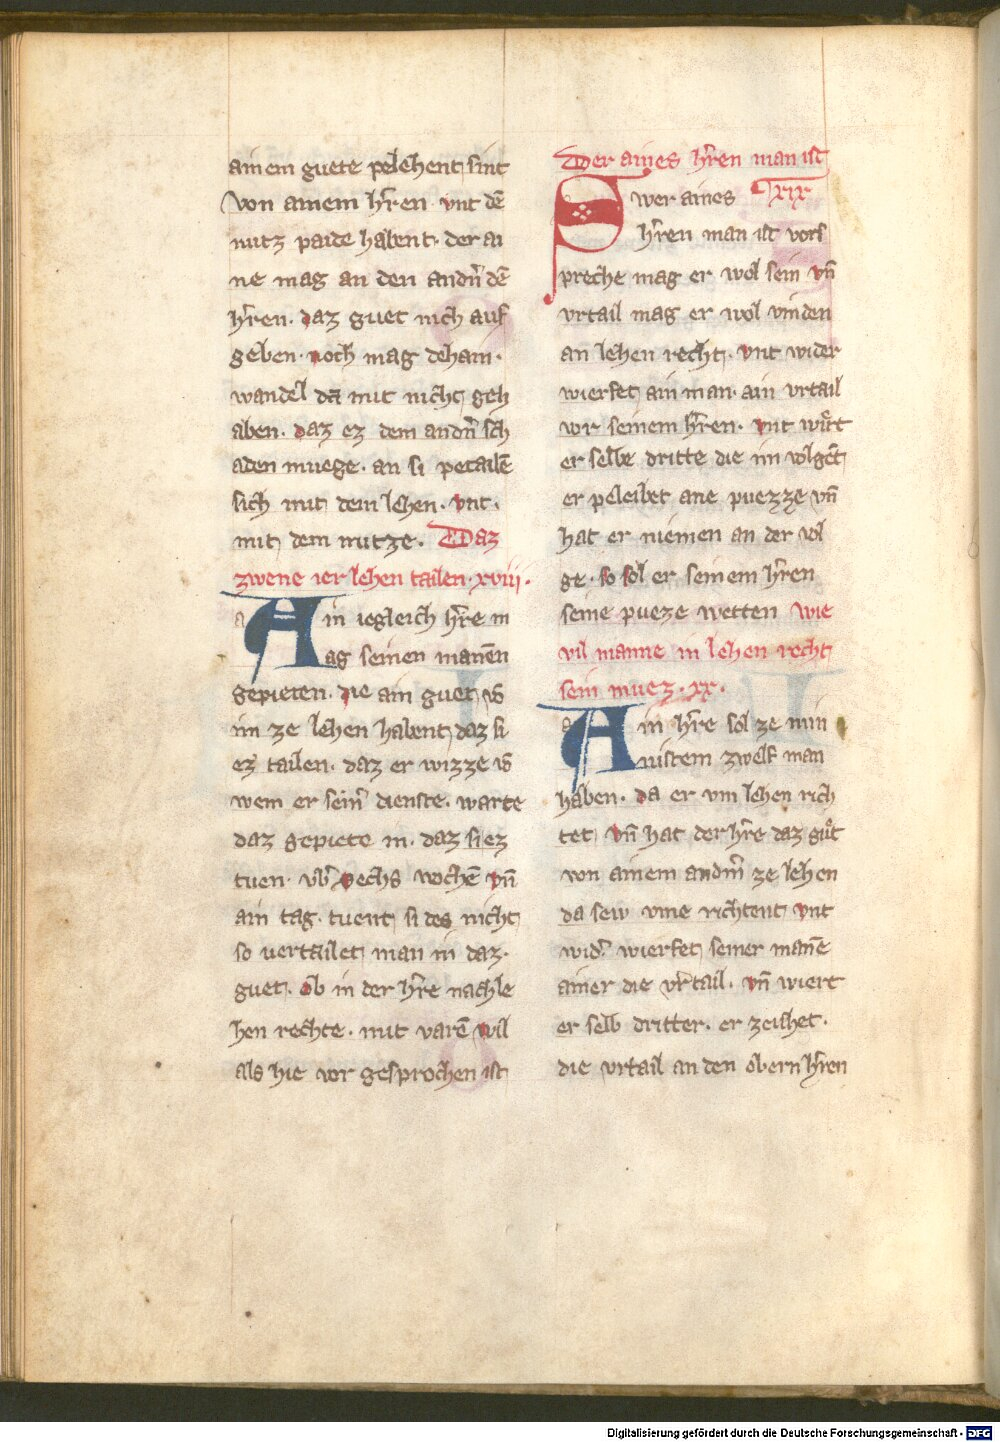 ainem guete pelehent sint
von ainem hr̄en vnt dē
nutz paide habent· der ai
ne mag an den andn̄ dē
hr̄en· daz guet nich auf
geben· noch mag dehain·
wandel da mit nicht geh
aben· daz ez dem andn̄ sch
aden muege· an si petailē
sich mit dem lehen· vnt·
mit dem nutze· Daz
zwene ier lehen tailen· xviii·
Ain iegleich hr̄re m
ag seinen manēn
gepieten· die ain guet vō
im ze lehen habent daz si
ez tailen· daz er wizze vō
wem er sein̄ dienste· warte
daz gepiete in· daz si ez
tuen· vb̄ sechs wochē vn̄
ain tag· tuent si des nicht
so vertailet man in daz·
guet· ob in der hr̄re nachle
hen rechte· mit varē wil
als hie vor gesprochen ist
Der aines hr̄en man ist
Swer aines xix
hr̄en man ist vors
preche mag er wol sein vn̄
vrtail mag er wol vinden
an lehen recht· vnt wider
wierfet ain man· ain vrtail
vor seinem hr̄en· vnt wirt
er selbe dritte die im volgēt
er peleibet ane puezze vn̄
hat er niemen an der vol
ge· so sol er seinem hr̄en
seine pueze wetten wie
vil manne in lehen recht
sein muez· xx·
Ain hr̄re sol ze min
nistem zwelf man
haben· da er vm lehen rich
tet vn̄ hat der hr̄re daz gůt
von ainem andm̄ ze lehen
da sew vme richtent vnt
wid̄ wierfet seiner manē
ainer die vr̄tail· vn̄ wiert
er selb dritter· er zeihet·
die vrtail an den obern hr̄en
Digitalisierung gefördert durch die Deutsche Forschungsgemeinschaft - DFG